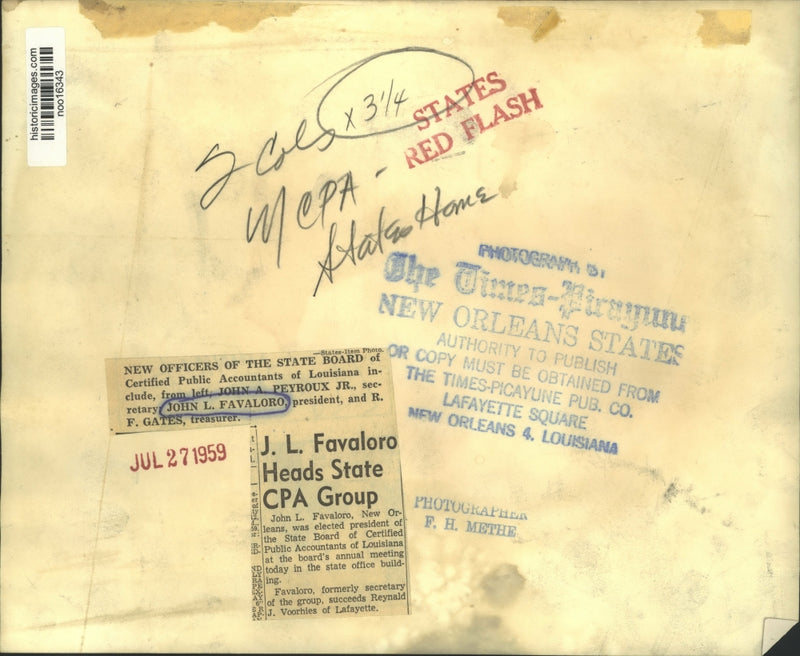 historicimages.com
noo16343
2 Cols x 3 1/4
M CPA -
States Home
STATES
RED FLASH
PHOTOGRAPH BY
The Times-Picayune
NEW ORLEANS STATES
AUTHORITY TO PUBLISH
OR COPY MUST BE OBTAINED FROM
THE TIMES-PICAYUNE PUB. CO.
LAFAYETTE SQUARE
NEW ORLEANS 4, LOUISIANA
—States-Item Photo.
NEW OFFICERS OF THE STATE BOARD of
Certified Public Accountants of Louisiana in-
clude, from left, JOHN A. PEYROUX JR., sec-
retary, JOHN L. FAVALORO, president, and R.
F. GATES, treasurer.
JUL 27 1959
J. L. Favaloro
Heads State
CPA Group
John L. Favaloro, New Or-
leans, was elected president of
the State Board of Certified
Public Accountants of Louisiana
at the board's annual meeting
today in the state office build-
ing.
Favaloro, formerly secretary
of the group, succeeds Reynald
J. Voorhies of Lafayette.
PHOTOGRAPHER
F. H. METHE